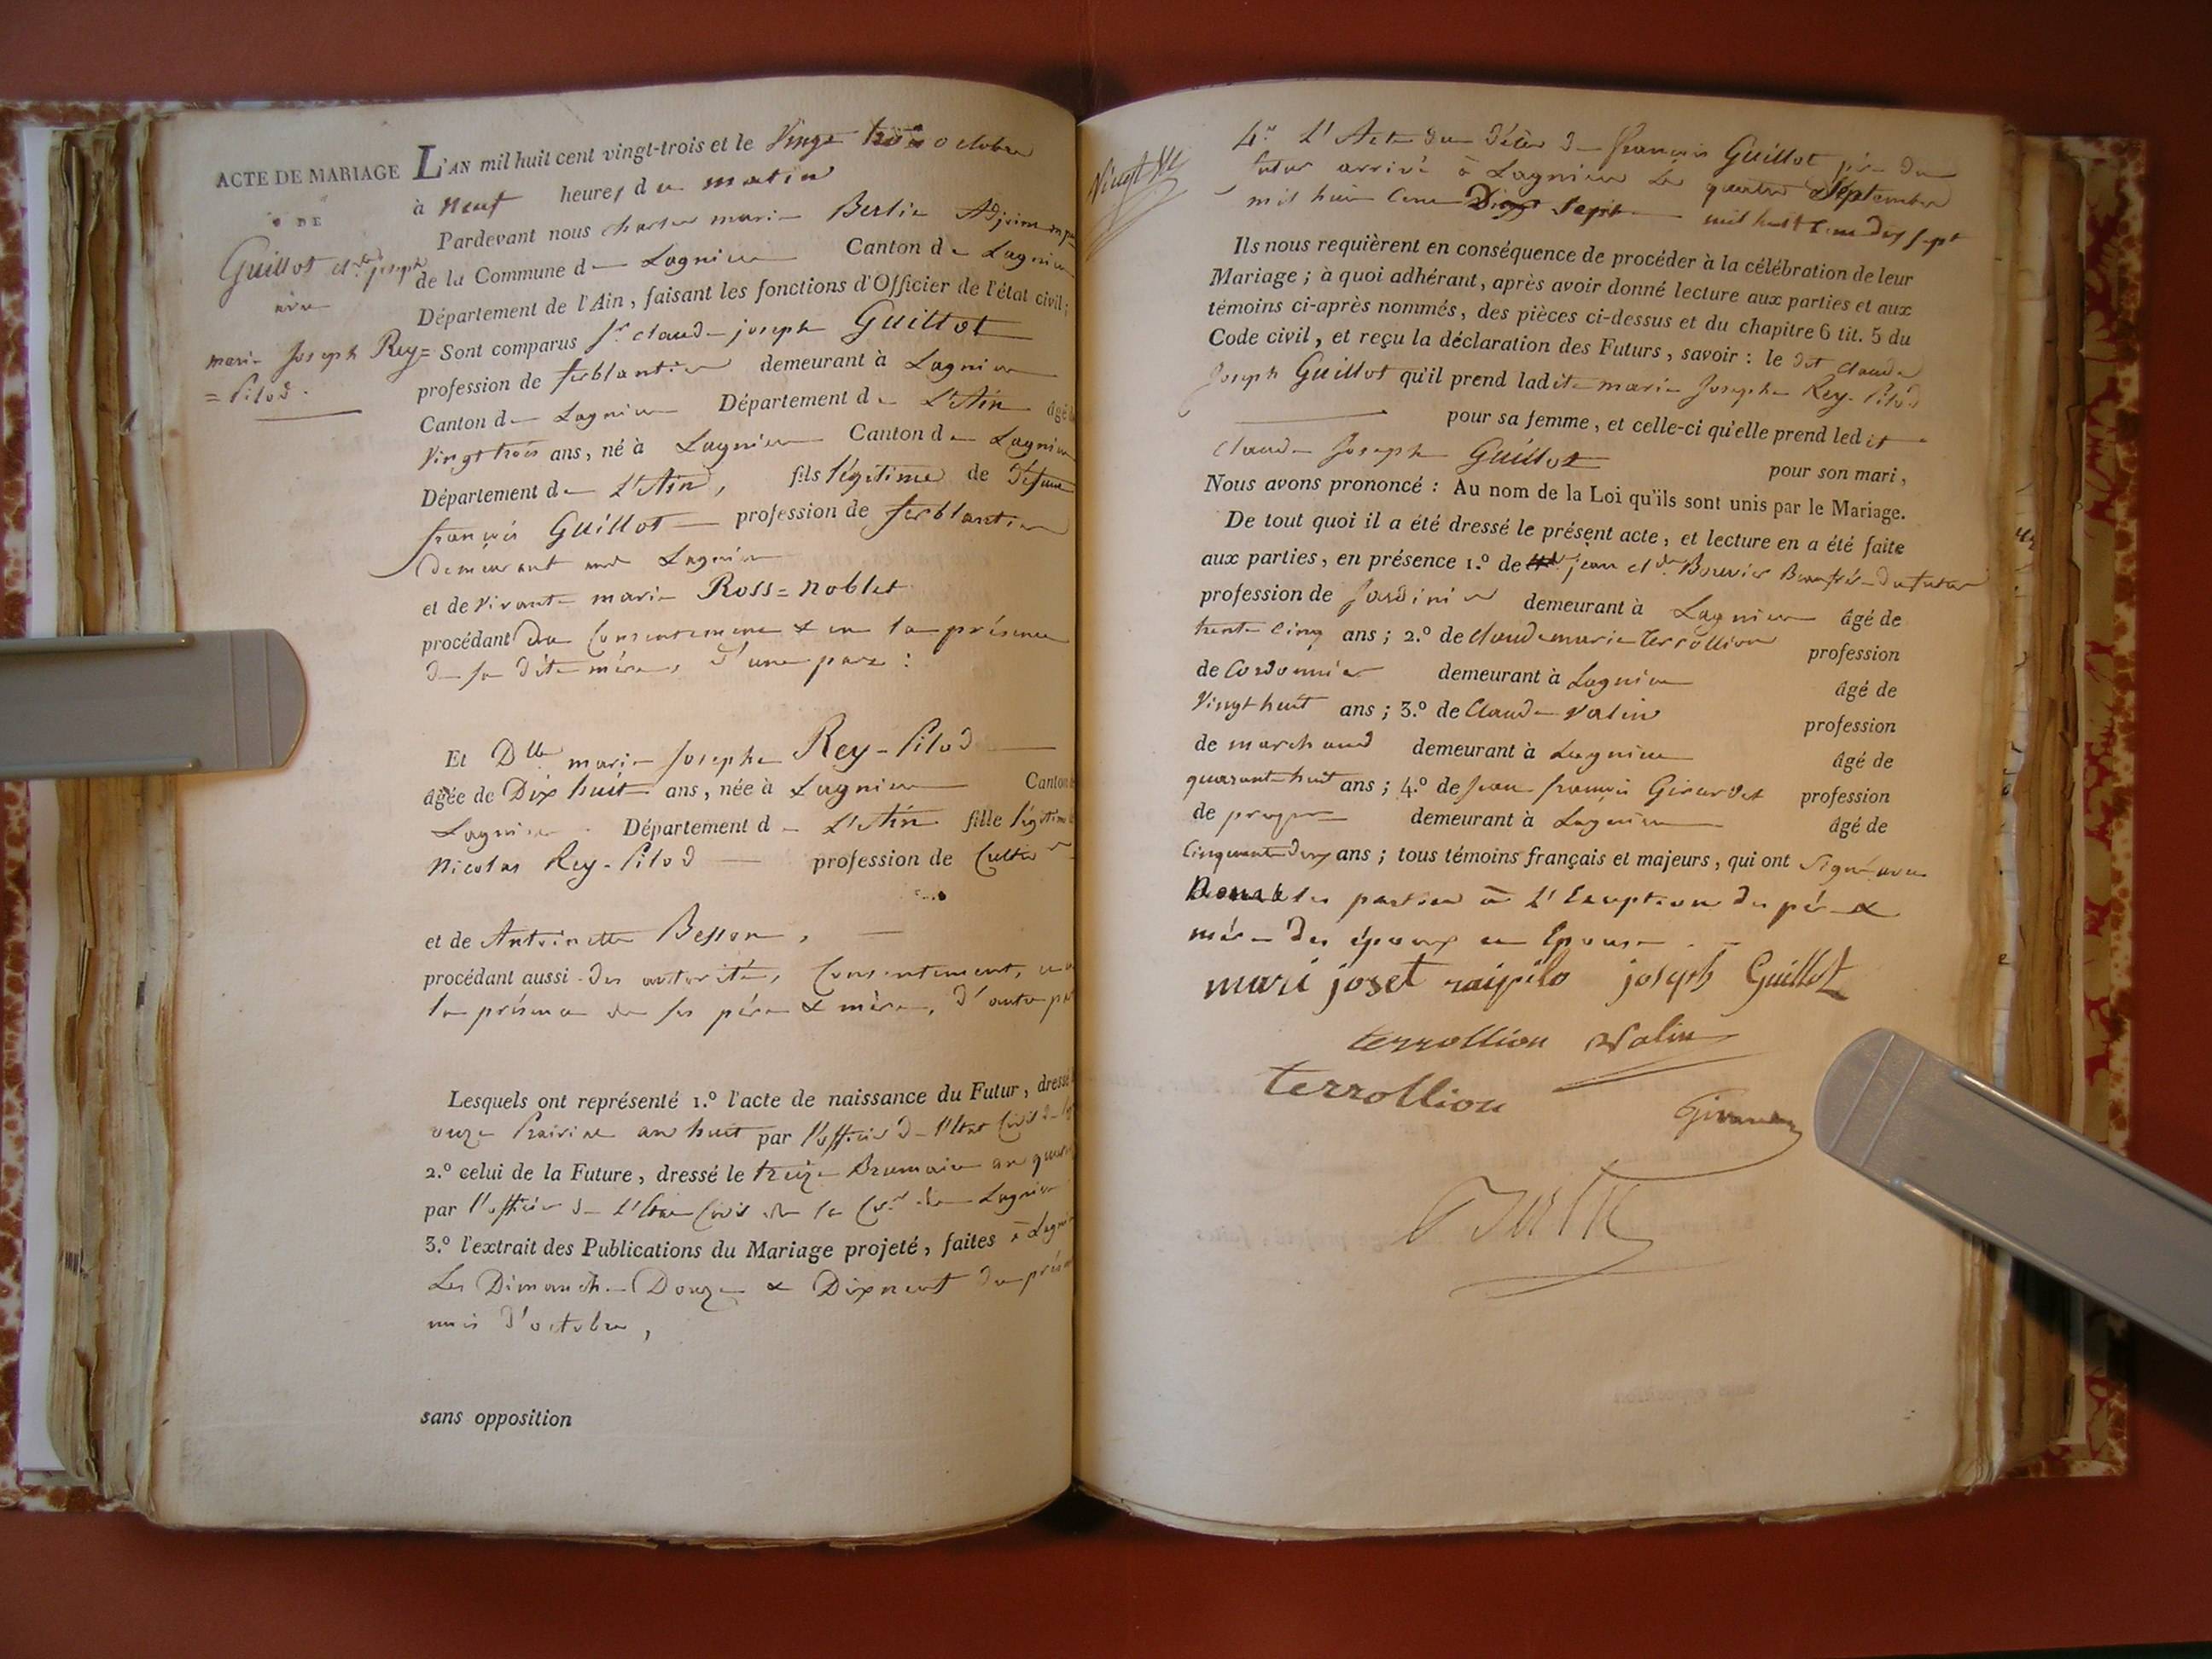 ACTE DE MARIAGE
DE
Guillot cl.de joseph
avec
marie Joseph Rey=
=Pilod.
L'AN mil huit cent vingt-trois et le Vingt trois octobre
à neuf heures du matin
Pardevant nous charles marie Berlie Adjoint
de la Commune de Lagnieu Canton de Lagnieu
Département de l'Ain, faisant les fonctions d'Officier de l'état civil;
Sont comparus Sr claude joseph Guillot
profession de ferblantier demeurant à Lagnieu
Canton de Lagnieu Département de L'Ain âgé
Vingt trois ans, né à Lagnieu Canton de Lagnieu
Département de L'Ain, fils légitime de défunt
françois Guillot profession de ferblantier
demeurant Lagnieu
et de vivante marie Ross=noblet
procédant du Consentement & en la présence
de sa dite mère, d'une part:
Et Dlle marie Josephe Rey-Pilod
âgée de Dix huit ans, née à Lagnieu Canton
Lagnieu Département de L'Ain fille légitime
Nicolas Rey-Pilod profession de Cultiv
et de Antoinette Besson,
procédant aussi des autorité, Consentement, en
la présence de ses père & mère, d'autre part
Lesquels ont représenté 1.º l'acte de naissance du Futur, dressé
onze Prairial an huit par l'officier de l'Etat Civil de
2.º celui de la Future, dressé le treize Brumaire an
par l'officier de L'Etat Civil de la Cne de Lagnieu
3.º l'extrait des Publications du Mariage projeté, faites à Lagnieu
Les Dimanche Douze & Dixneuf du présent
mois d'octobre,
sans opposition
4.º L'Acte du décès de françois Guillot père du
futur arrivé à Lagnieu le quatre Septembre
mil huit cent Dix Sept mil huit cent dix sept
Ils nous requièrent en conséquence de procéder à la célébration de leur
Mariage; à quoi adhérant, après avoir donné lecture aux parties et aux
témoins ci-après nommés, des pièces ci-dessus et du chapitre 6 tit. 5 du
Code civil, et reçu la déclaration des Futurs, savoir: le dit claude
Joseph Guillot qu'il prend ladite marie Josephe Rey-Pilod
pour sa femme, et celle-ci qu'elle prend ledit
claude Joseph Guillot pour son mari,
Nous avons prononcé: Au nom de la Loi qu'ils sont unis par le Mariage.
De tout quoi il a été dressé le présent acte, et lecture en a été faite
aux parties, en présence 1.º de jean cl.de Bouvier Beaufrère du futur
profession de Jardinier demeurant à Lagnieu âgé de
trente cinq ans; 2.º de claude marie Terrollion profession
de Cordonnier demeurant à Lagnieu âgé de
Vingt huit ans; 3.º de Claude Valin profession
de marchand demeurant à Lagnieu âgé de
quarante huit ans; 4.º de Jean françois Girardet profession
de demeurant à Lagnieu âgé de
Cinquante deux ans; tous témoins français et majeurs, qui ont signé avec
les parties à L'Exeption des père &
mère des époux
mari jozet raipilo joseph Guillot
terrollion Valin
terrollion
Girardet